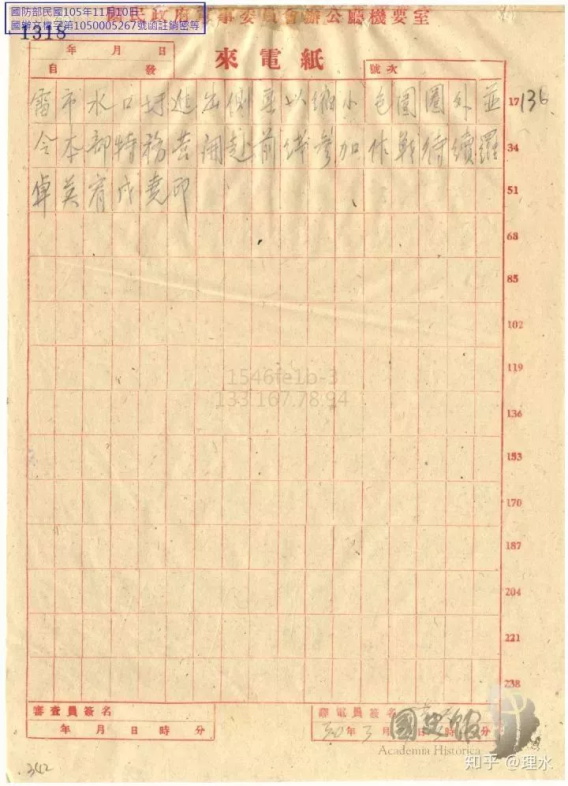 國防部民國105年11月10日
國辦文檔字第1050005267號函註銷密等
1318
事委員會辦公廳機要室
年 月 日
自 發
來電紙
號次
雷市水口圩進出側並以縮小包圍圈外並 17 136
令本部特務營開赴前綫參加作戰待續羅 34
卓英宥戌堯印 51
68
85
102
1546fe1b-3
119
133.167.78.94
136
153
170
187
204
221
238
審查員簽名
年 月 日 時 分
譯電員簽名
30年3月 日 時 分
國史館
Academia Historica
知乎 @理水
342